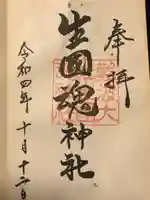 奉拝
生國魂神社
令和四年十月十二日